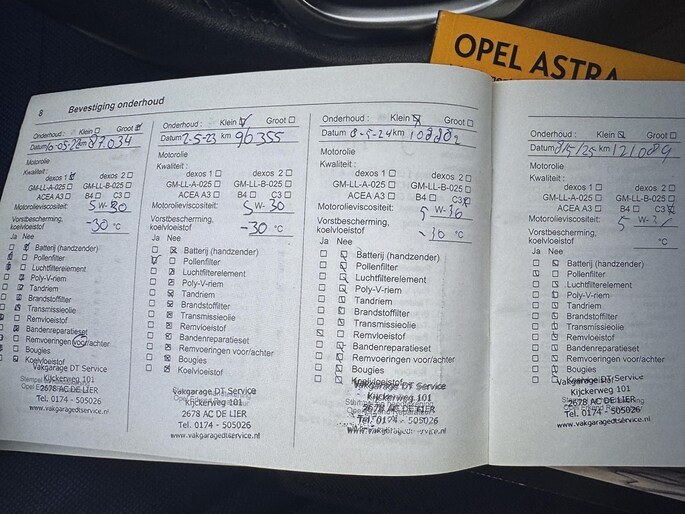 OPEL ASTRA
8 Bevestiging onderhoud
Onderhoud : Klein Groot
Datum km 87.034
Motorolie
Kwaliteit :
dexos 1 dexos 2
GM-LL-A-025 GM-LL-B-025
ACEA A3 B4 C3
Motorolieviscositeit: 5 W-30
Vorstbescherming,
koelvloeistof -30 °C
Ja Nee
Batterij (handzender)
Pollenfilter
Luchtfilterelement
Poly-V-riem
Tandriem
Brandstoffilter
Transmissieolie
Remvloeistof
Bandenreparatieset
Remvoeringen voor/achter
Bougies
Koelvloeistof
Vakgarage DT Service
Kijckerweg 101
2678 AC DE LIER
Tel. 0174 - 505026
www.vakgaragedtservice.nl
Onderhoud : Klein Groot
Datum 2-5-23 km 90355
Motorolie
Kwaliteit :
dexos 1 dexos 2
GM-LL-A-025 GM-LL-B-025
ACEA A3 B4 C3
Motorolieviscositeit: 5 W-30
Vorstbescherming,
koelvloeistof -30 °C
Ja Nee
Batterij (handzender)
Pollenfilter
Luchtfilterelement
Poly-V-riem
Tandriem
Brandstoffilter
Transmissieolie
Remvloeistof
Bandenreparatieset
Remvoeringen voor/achter
Bougies
Koelvloeistof
Vakgarage DT Service
Kijckerweg 101
2678 AC DE LIER
Tel. 0174 - 505026
www.vakgaragedtservice.nl
Onderhoud : Klein Groot
Datum 8-5-24 km
Motorolie
Kwaliteit :
dexos 1 dexos 2
GM-LL-A-025 GM-LL-B-025
ACEA A3 B4 C3
Motorolieviscositeit: 5 W-30
Vorstbescherming,
koelvloeistof -30 °C
Ja Nee
Batterij (handzender)
Pollenfilter
Luchtfilterelement
Poly-V-riem
Tandriem
Brandstoffilter
Transmissieolie
Remvloeistof
Bandenreparatieset
Remvoeringen voor/achter
Bougies
Koelvloeistof
Vakgarage DT Service
Kijckerweg 101
2678 AC DE LIER
Tel. 0174 - 505026
www.vakgaragedtservice.nl
Onderhoud : Klein Groot
Datum km 121089
Motorolie
Kwaliteit :
dexos 1 dexos 2
GM-LL-A-025 GM-LL-B-025
ACEA A3 B4 C3
Motorolieviscositeit: 5 W-3
Vorstbescherming,
koelvloeistof °C
Ja Nee
Batterij (handzender)
Pollenfilter
Luchtfilterelement
Poly-V-riem
Tandriem
Brandstoffilter
Transmissieolie
Remvloeistof
Bandenreparatieset
Remvoeringen voor/achter
Bougies
Koelvloeistof
Vakgarage DT Service
Kijckerweg 101
2678 AC DE LIER
Tel. 0174 - 505026
www.vakgaragedtservice.nl